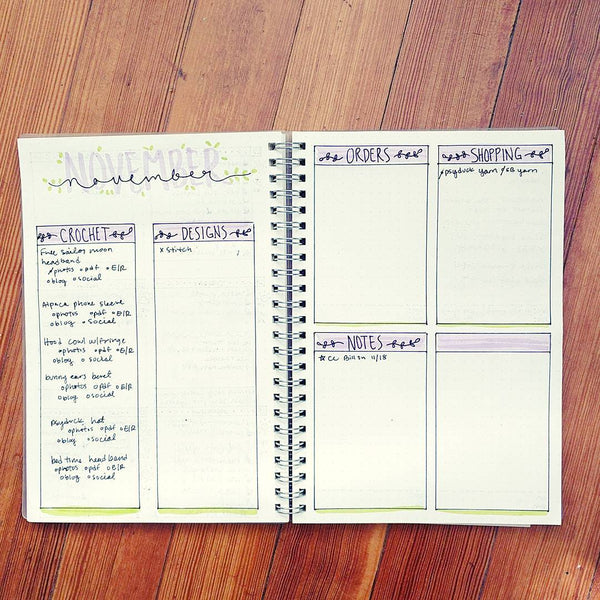 NOVEMBER
november
CROCHET
Free sailor moon
headband
photos pdf E/R
blog social
Alpaca phone sleeve
photos pdf E/R
blog social
Hood cowl w/fringe
photos pdf E/R
blog social
bunny ears beret
photos pdf E/R
blog social
psyduck hat
photos pdf E/R
blog social
bed time headband
photos pdf E/R
blog social
DESIGNS
x Stitch
ORDERS
SHOPPING
psyduck yarn SB yarn
NOTES
CC Bill on 11/18